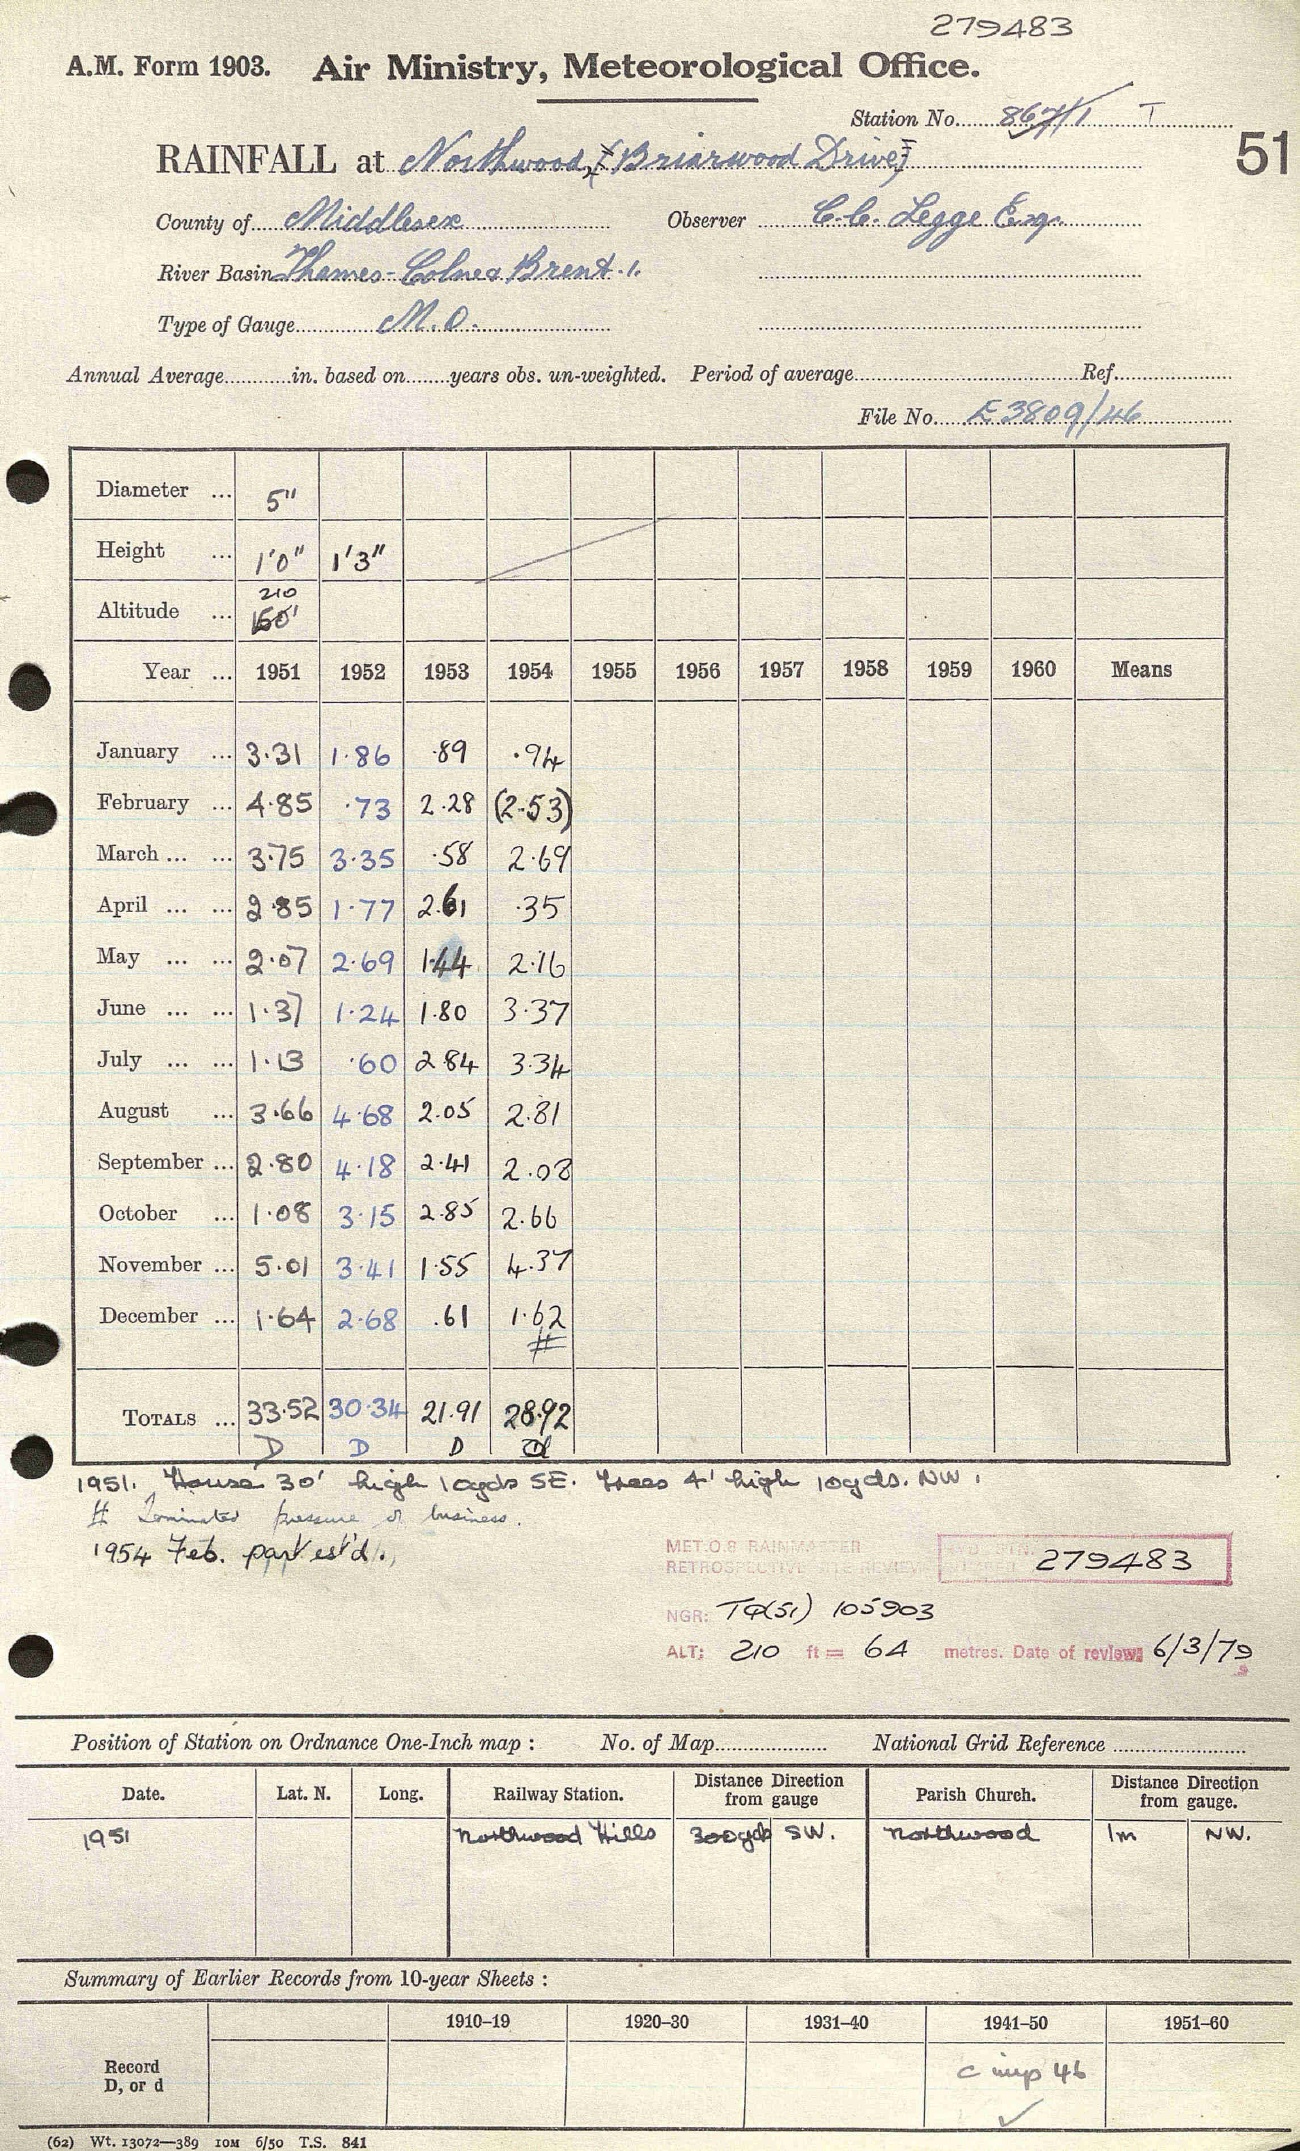 279483
A.M. Form 1903. Air Ministry, Meteorological Office.
Station No. 867/1 T
51
RAINFALL at Northwood, (Briarwood Drive)
County of Middlesex Observer C.C. Legge Esq.
River Basin Thames-Colne & Brent.
Type of Gauge M.O.
Annual Average in. based on years obs. un-weighted. Period of average Ref.
File No. E3809/46
Diameter ... 5"
Height ... 1'0" 1'3"
210
Altitude ... 150'
Year ... 1951 1952 1953 1954 1955 1956 1957 1958 1959 1960 Means
January ... 3.31 1.86 .89 .94
February ... 4.85 .73 2.28 (2.53)
March ... ... 3.75 3.35 .58 2.69
April ... ... 2.85 1.77 2.61 .35
May ... ... 2.07 2.69 1.44 2.16
June ... ... 1.37 1.24 1.80 3.37
July ... ... 1.13 .60 2.84 3.34
August ... 3.66 4.68 2.05 2.81
September ... 2.80 4.18 2.41 2.08
October ... 1.08 3.15 2.85 2.66
November ... 5.01 3.41 1.55 4.37
December ... 1.64 2.68 .61 1.62
#
TOTALS ... 33.52 30.34 21.91 28.92
D D D d
1951. House 30' high 10yds SE. Trees 4' high 10yds. NW.
# Terminated pressure of business.
1954 Feb. part est'd.
MET.O.8 RAINMASTER
RETROSPECTIVE SITE REVIEW 279483
NGR: TQ(51) 105903
ALT: 210 ft = 64 metres. Date of review: 6/3/79
Position of Station on Ordnance One-Inch map : No. of Map National Grid Reference
Date. Lat. N. Long. Railway Station. Distance Direction from gauge Parish Church. Distance Direction from gauge.
1951 Northwood Hills 300yds SW. Northwood 1m NW.
Summary of Earlier Records from 10-year Sheets :
1910–19 1920–30 1931–40 1941–50 1951–60
Record
D, or d
46
(62) Wt. 13072—389 10M 6/50 T.S. 841